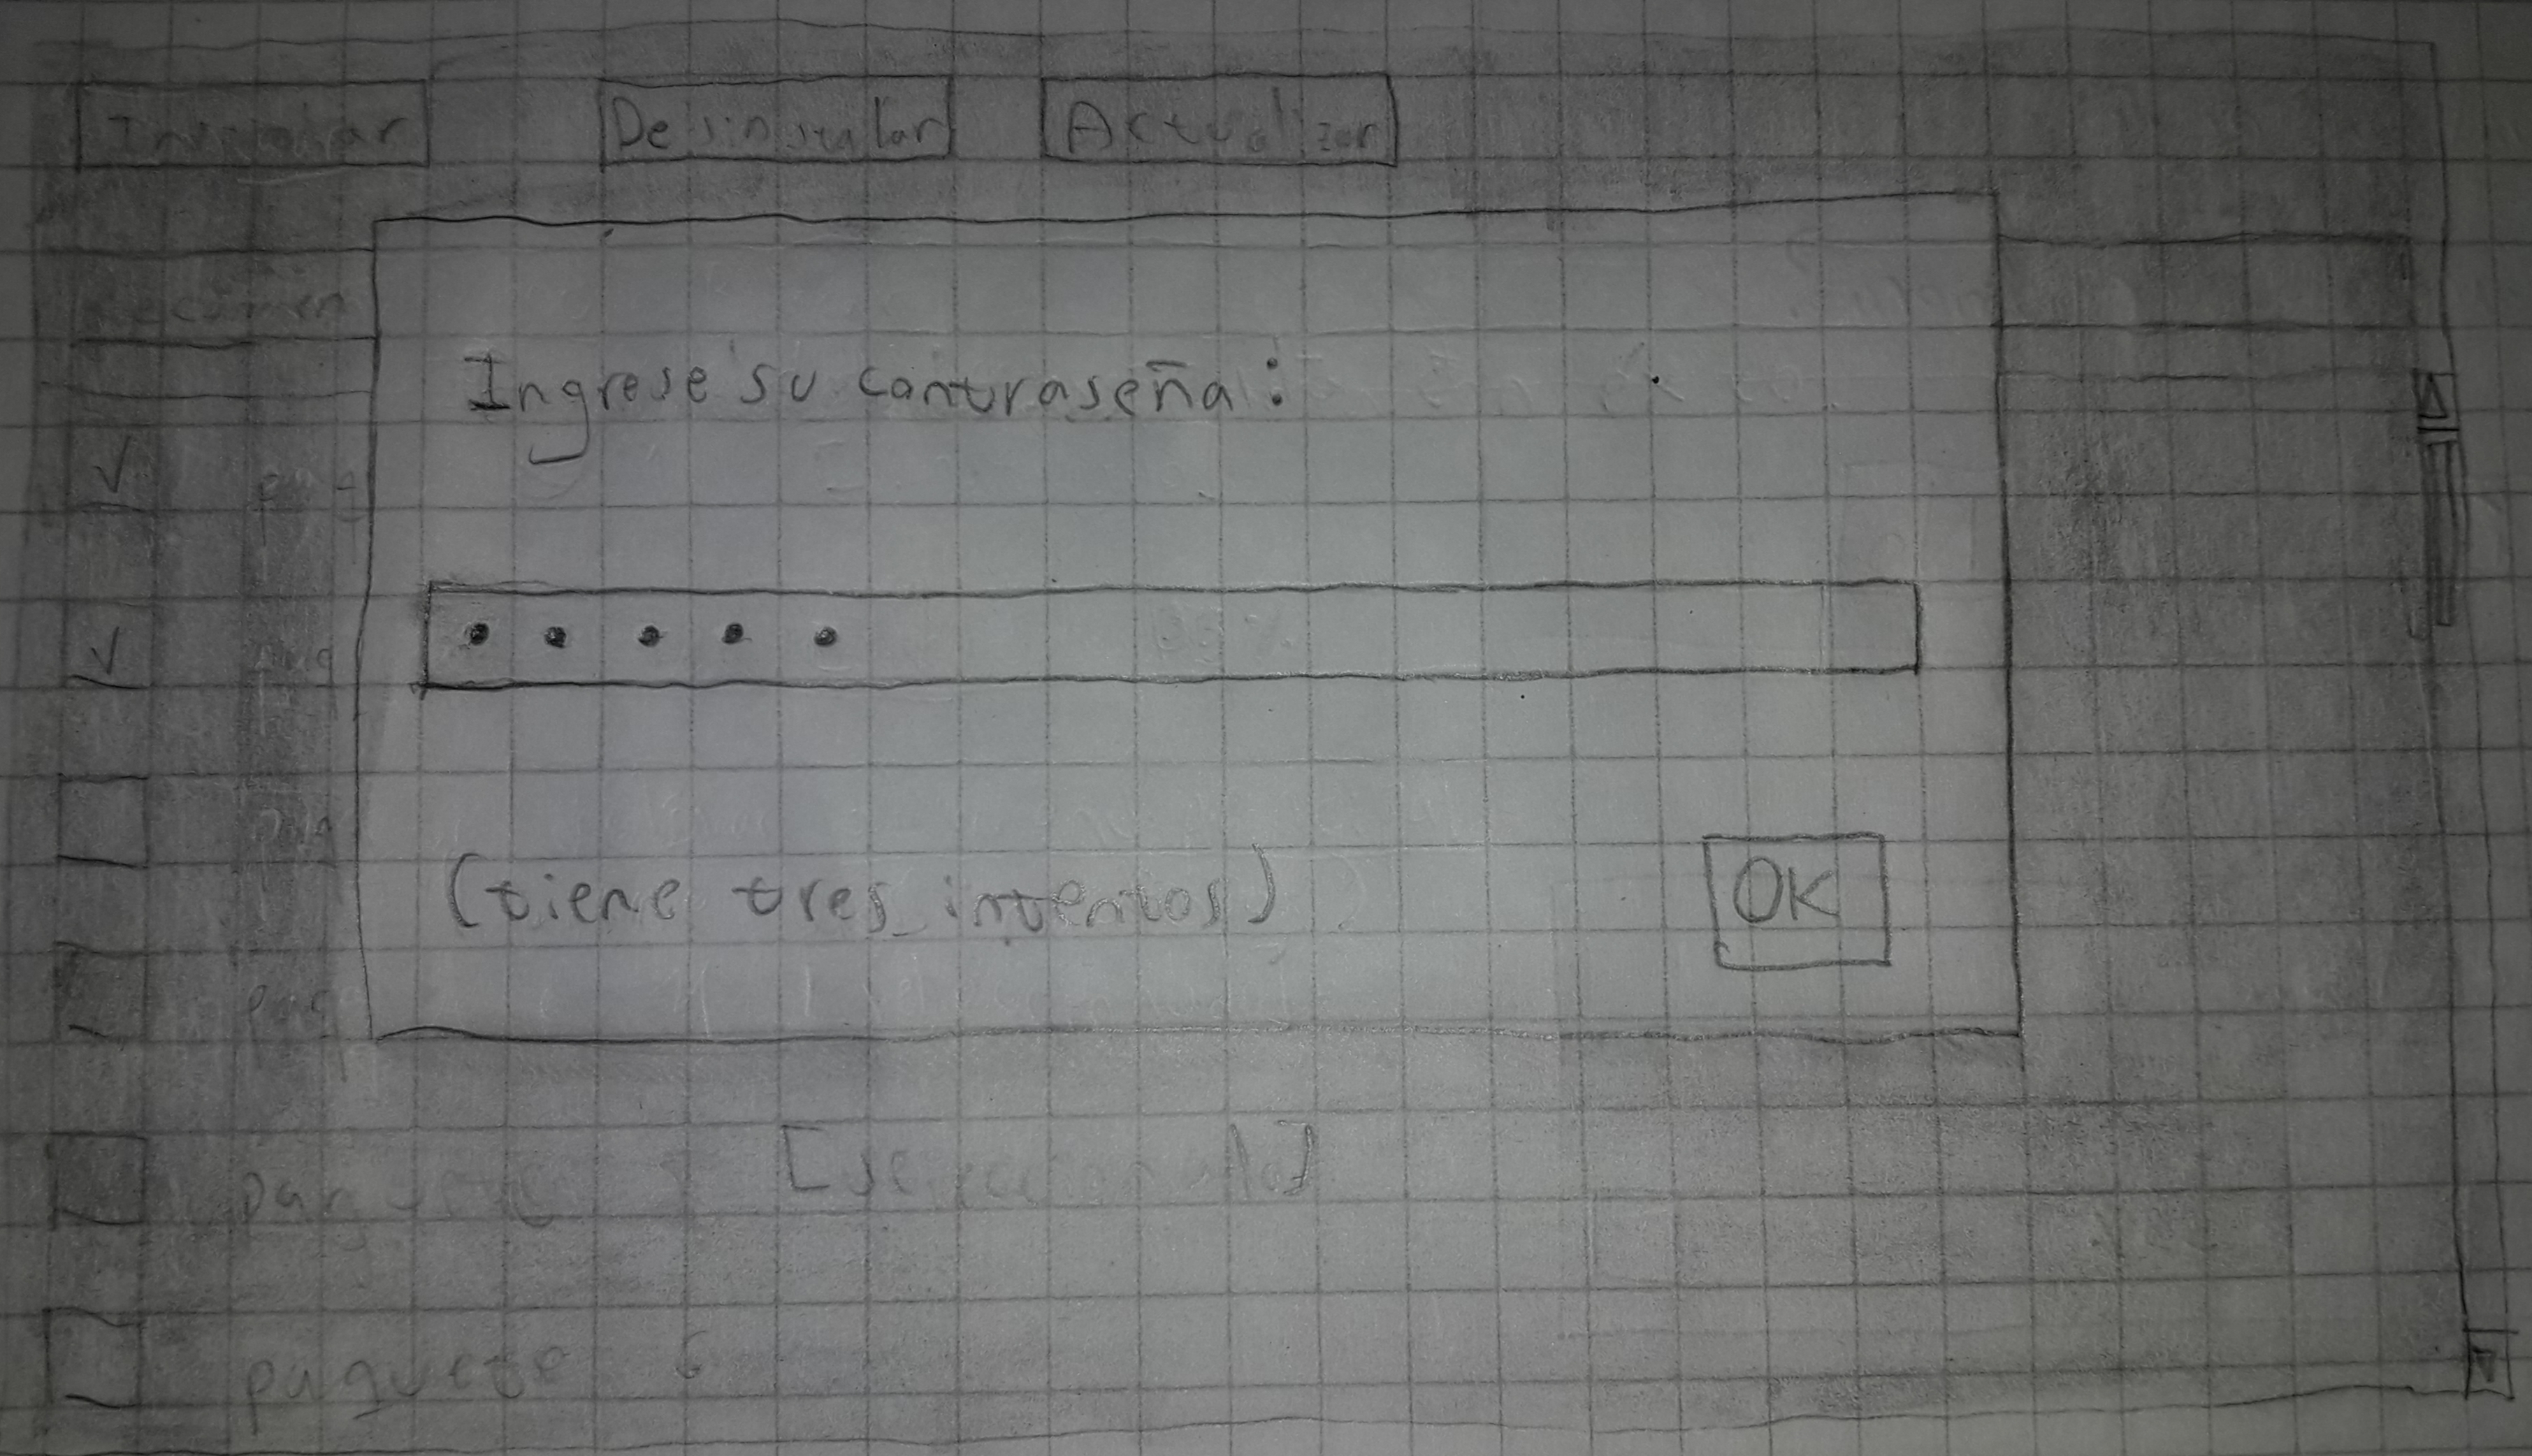 Instalar Desinstalar Actualizar
Recomen
Ingrese su contraseña:
paq
paq
(tiene tres intentos) OK
paq
paq
paquete [seleccionado]
paquete 6